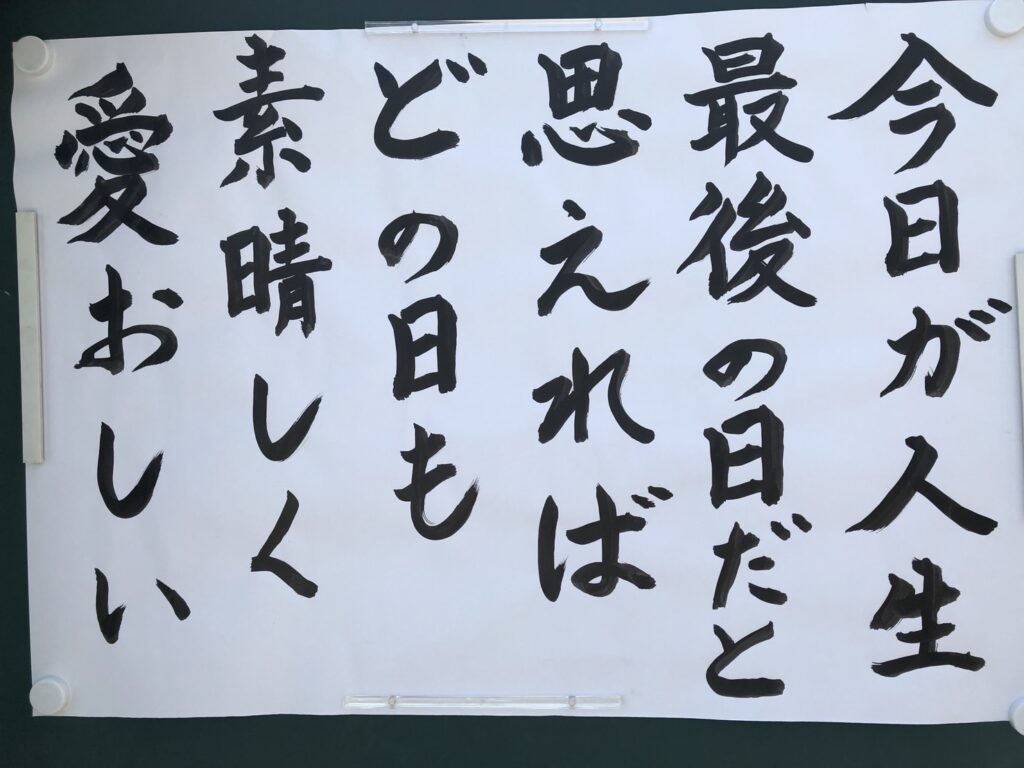 今日が人生
最後の日だと
思えれば
どの日も
素晴しく
愛おしい